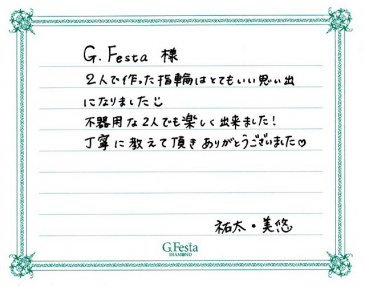 G.Festa 様
2人で作った指輪はとてもいい思い出
になりました
不器用な2人でも楽しく出来ました!
丁寧に教えて頂きありがとうございました♡
祐太・美悠
G.Festa
DIAMOND